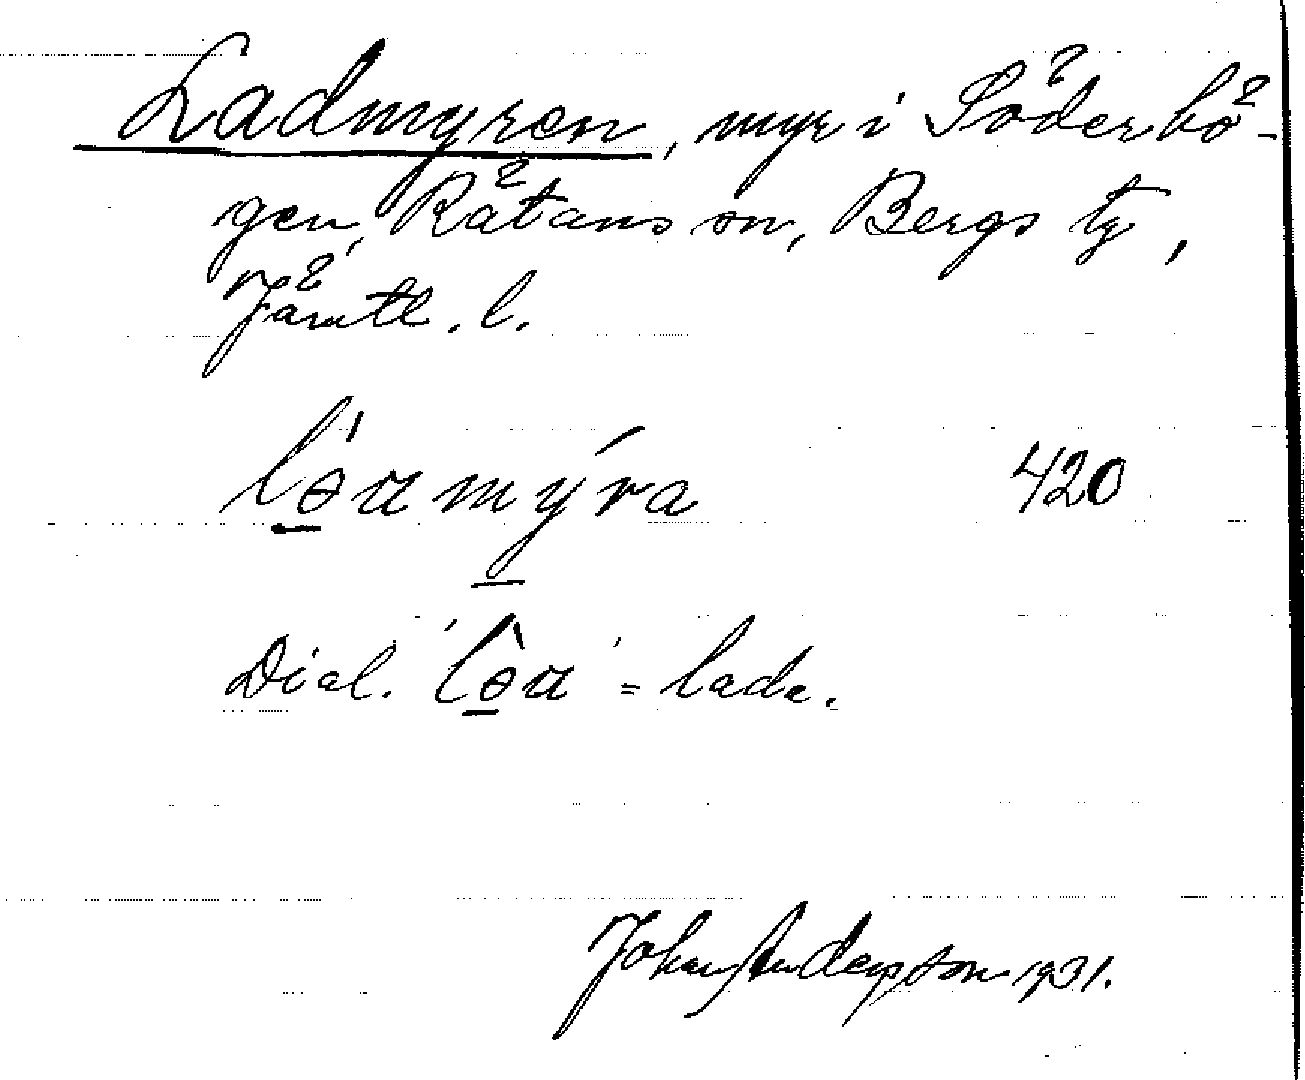 Ladmyren, myr i Söderhö-
gen, Rätans sn, Bergs tg,
Jämtl. l.
lo̱ˈu mý̱ra 420
Dial. 'lô̱u' = lada.
Johan Anderson 1931.